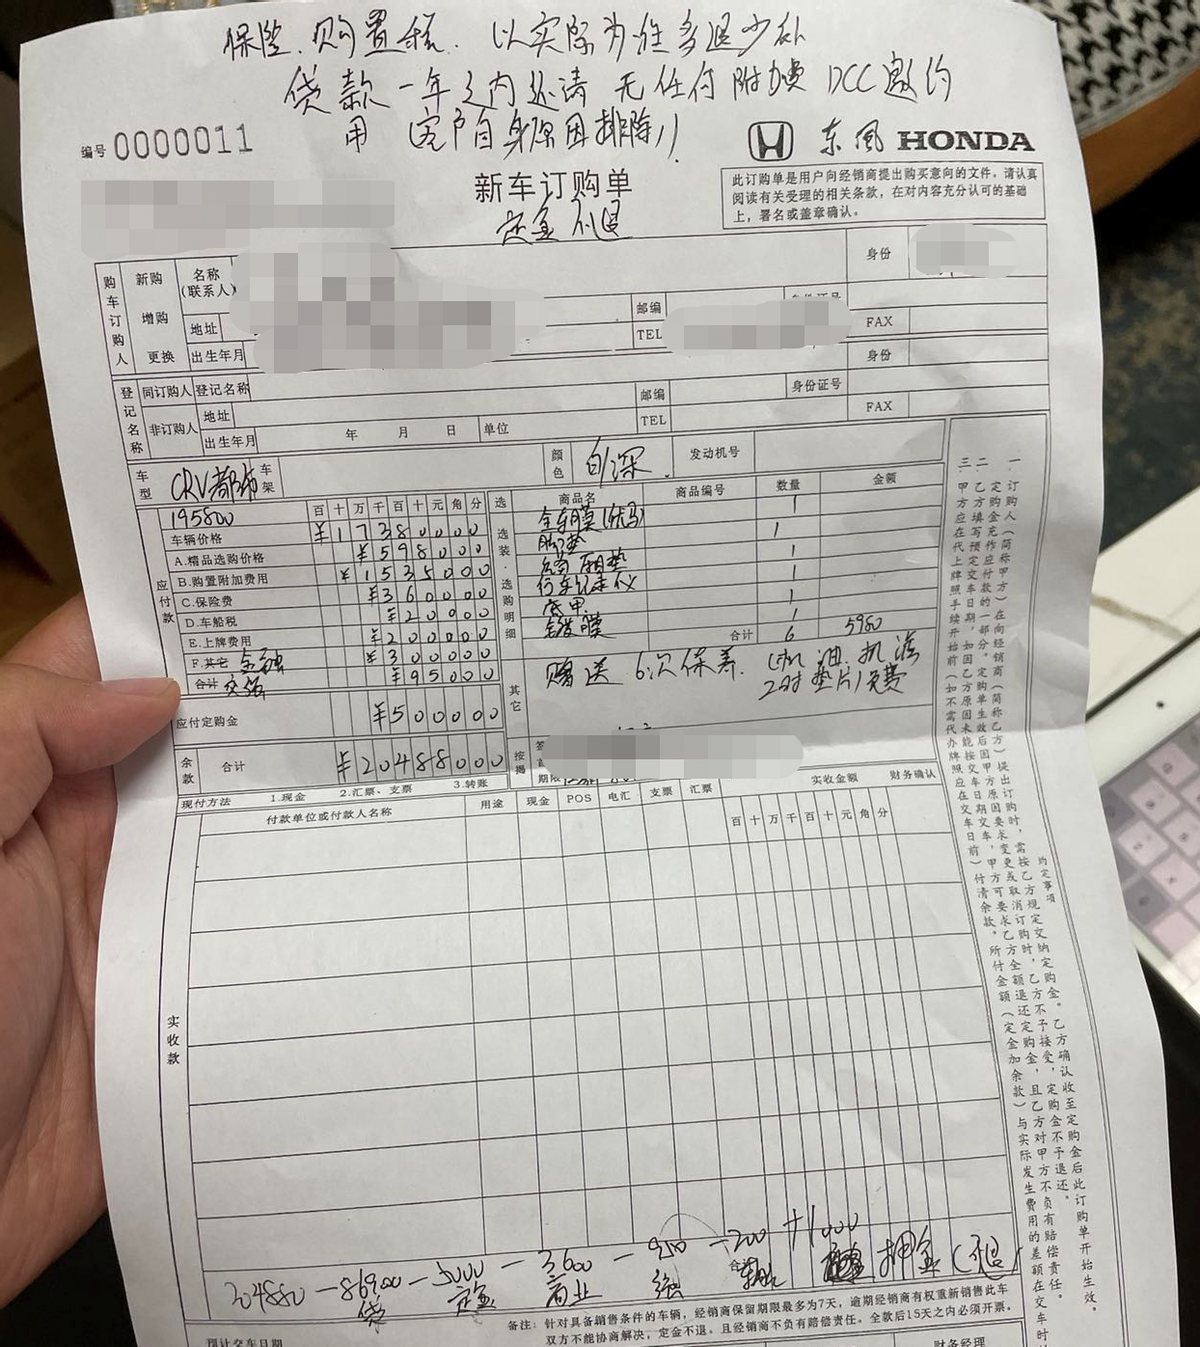 保险、购置税、以实际为准多退少补
贷款一年之内还请 无任何附加费 DCC邀约
用(客户自身原因排除)
编号 0000011
东風 HONDA
新车订购单
定金不退
此订购单是用户向经销商提出购买意向的文件。请认真
阅读有关受理的相关条款，在对内容充分认可的基础
上，署名或盖章确认。
购车订购人 新购 增购 更换
名称
(联系人)
身份
地址
邮编
TEL
FAX
出生年月
身份
登记名称 同订购人 非订购人
登记名称
邮编
身份证号
地址
TEL
FAX
出生年月 年 月 日 单位
车型 CRV都市 车架
颜色 白/深
发动机号
195800
百 十 万 千 百 十 元 角 分
应付款
车辆价格 ¥17380000
A.精品选购价格 ¥598000
B.购置附加费用 ¥1535000
C.保险费 ¥360000
D.车船税 ¥20900
E.上牌费用 ¥20000
F.其它 金融 ¥300000
合计 交强 ¥95000
应付定购金 ¥500000
余款 合计 ¥20488000
选装·选购明细
商品名 商品编号 数量 金额
全车膜 1
脚垫 1
后备箱垫 1
行车记录仪 1
底甲 1
镀膜 1
合计 6 5980
其它
赠送 6次保养 (机油、机滤
工时 垫片)免费
按揭
期限
现付方法 1.现金 2.汇票、支票 3.转账
实收款
付款单位或付款人名称 用途 现金 POS 电汇 支票 汇票 实收金额 财务确认
百 十 万 千 百 十 元 角 分
204880 - 86900 - 5000 - 3600 - 950 - 200 + 1000
贷 定金 商业 押金(可退)
合计
备注：针对具备销售条件的车辆，经销商保留期限最多为7天，逾期经销商有权重新销售此车
双方不能协商解决，定金不退。且经销商不负有赔偿责任。全款后15天之内必须开票。
预计交车日期
财务经理
约定事项
一、订购人（简称甲方）在向经销商（简称乙方）提出订购时，需按乙方规定交纳定购金。乙方确认收至定购金后此订购单开始生效。
定购金充作应付款的一部分。定购单生效后因甲方原因要求变更或取消订购时，乙方不予接受，定购金不予退还。
二、乙方填写预定交车日期，如因乙方原因未能按交车日期交车，甲方可要求乙方全额退还定购金，且乙方对甲方不负有赔偿责任。
三、甲方应在代上牌照手续开始前（如不需代办牌照应在交车日前）付清余款。所付金额（定金加余款）与实际发生费用的差额在交车时